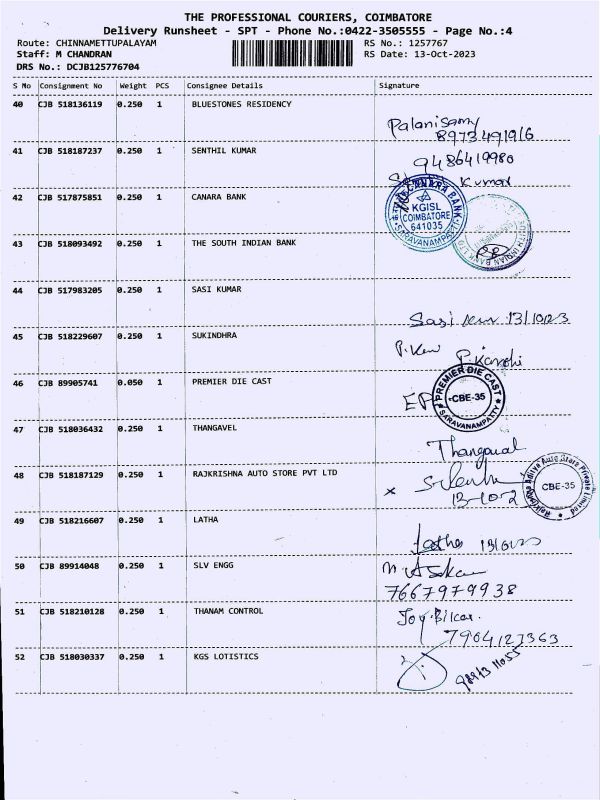 THE PROFESSIONAL COURIERS, COIMBATORE
Delivery Runsheet - SPT - Phone No.:0422-3505555 - Page No.:4
Route: CHINNAMETTUPALAYAM RS No.: 1257767
Staff: M CHANDRAN RS Date: 13-Oct-2023
DRS No.: DCJB125776704
S No Consignment No Weight PCS Consignee Details Signature
40 CJB 518136119 0.250 1 BLUESTONES RESIDENCY
Palanisamy
8973491916
41 CJB 518187237 0.250 1 SENTHIL KUMAR
9486419980
Kumar
42 CJB 517875851 0.250 1 CANARA BANK
CANARA BANK
KGISL
COIMBATORE
641035
SARAVANAMPATTI
43 CJB 518093492 0.250 1 THE SOUTH INDIAN BANK
SOUTH INDIAN BANK LTD
44 CJB 517983205 0.250 1 SASI KUMAR
Sasi 13/10/23
45 CJB 518229607 0.250 1 SUKINDHRA
46 CJB 89905741 0.050 1 PREMIER DIE CAST
PREMIER DIE CAST
CBE-35
SARAVANAMPATTY
47 CJB 518036432 0.250 1 THANGAVEL
Thangavel
48 CJB 518187129 0.250 1 RAJKRISHNA AUTO STORE PVT LTD
x
CBE-35
49 CJB 518216607 0.250 1 LATHA
Latha
50 CJB 89914048 0.250 1 SLV ENGG
7667979938
51 CJB 518210128 0.250 1 THANAM CONTROL
7904127363
52 CJB 518030337 0.250 1 KGS LOTISTICS